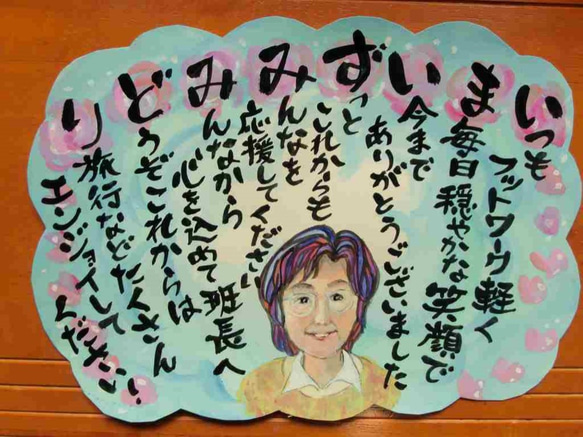 いつも
フットワーク軽く
ま毎日穏やかな笑顔で
い今まで
ありがとうございました
ずっと
これからも
みんなを
応援してください
みんなから
心を込めて班長へ
どうぞこれからは
り旅行などたくさん
エンジョイして
ください!